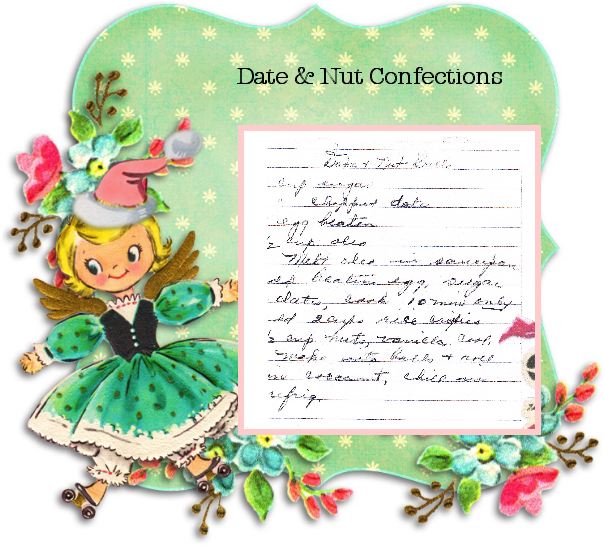 Date & Nut Confections
Date & Nut Balls
cup sugar
chopped date
egg beaten
½ cup oleo
Melt oleo in saucepan,
ad beatin egg, sugar
dats, cook 10 min only
ad 2 cups rice
½ cup nuts, vanilla, cool
Make into balls & roll
in cocoanut, chill in
refrig.